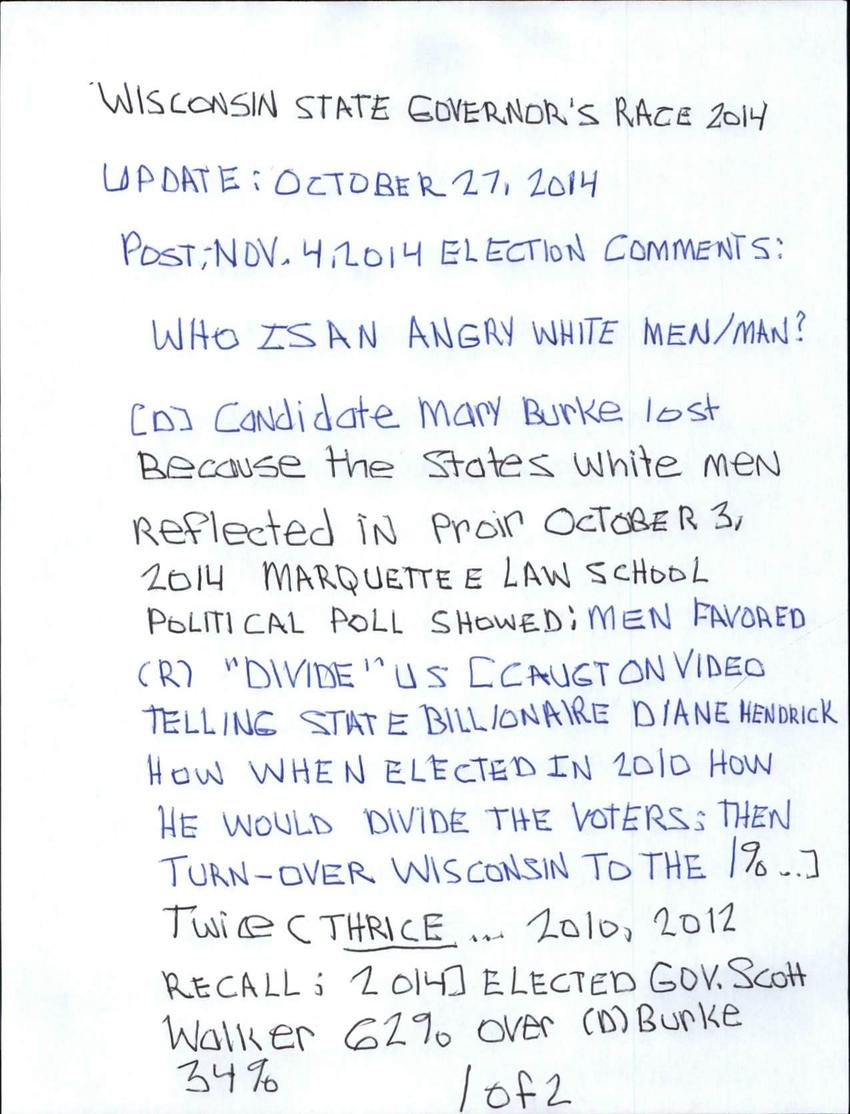 WISCONSIN STATE GOVERNOR'S RACE 2014
UPDATE: OCTOBER 27, 2014
POST; NOV. 4, 2014 ELECTION COMMENTS:
WHO IS AN ANGRY WHITE MEN/MAN?
[D] Candidate Mary Burke lost
Because the States white men
Reflected in Proir OCTOBER 3,
2014 MARQUETTEE LAW SCHOOL
POLITICAL POLL SHOWED; MEN FAVORED
(R) "DIVIDE" US [CAUGT ON VIDEO
TELLING STATE BILLIONAIRE DIANE HENDRICK
HOW WHEN ELECTED IN 2010 HOW
HE WOULD DIVIDE THE VOTERS; THEN
TURN-OVER WISCONSIN TO THE 1% ...]
Twice (THRICE ... 2010, 2012
RECALL; 2014] ELECTED GOV. Scott
Walker 62% over (D) Burke
34% 1 of 2